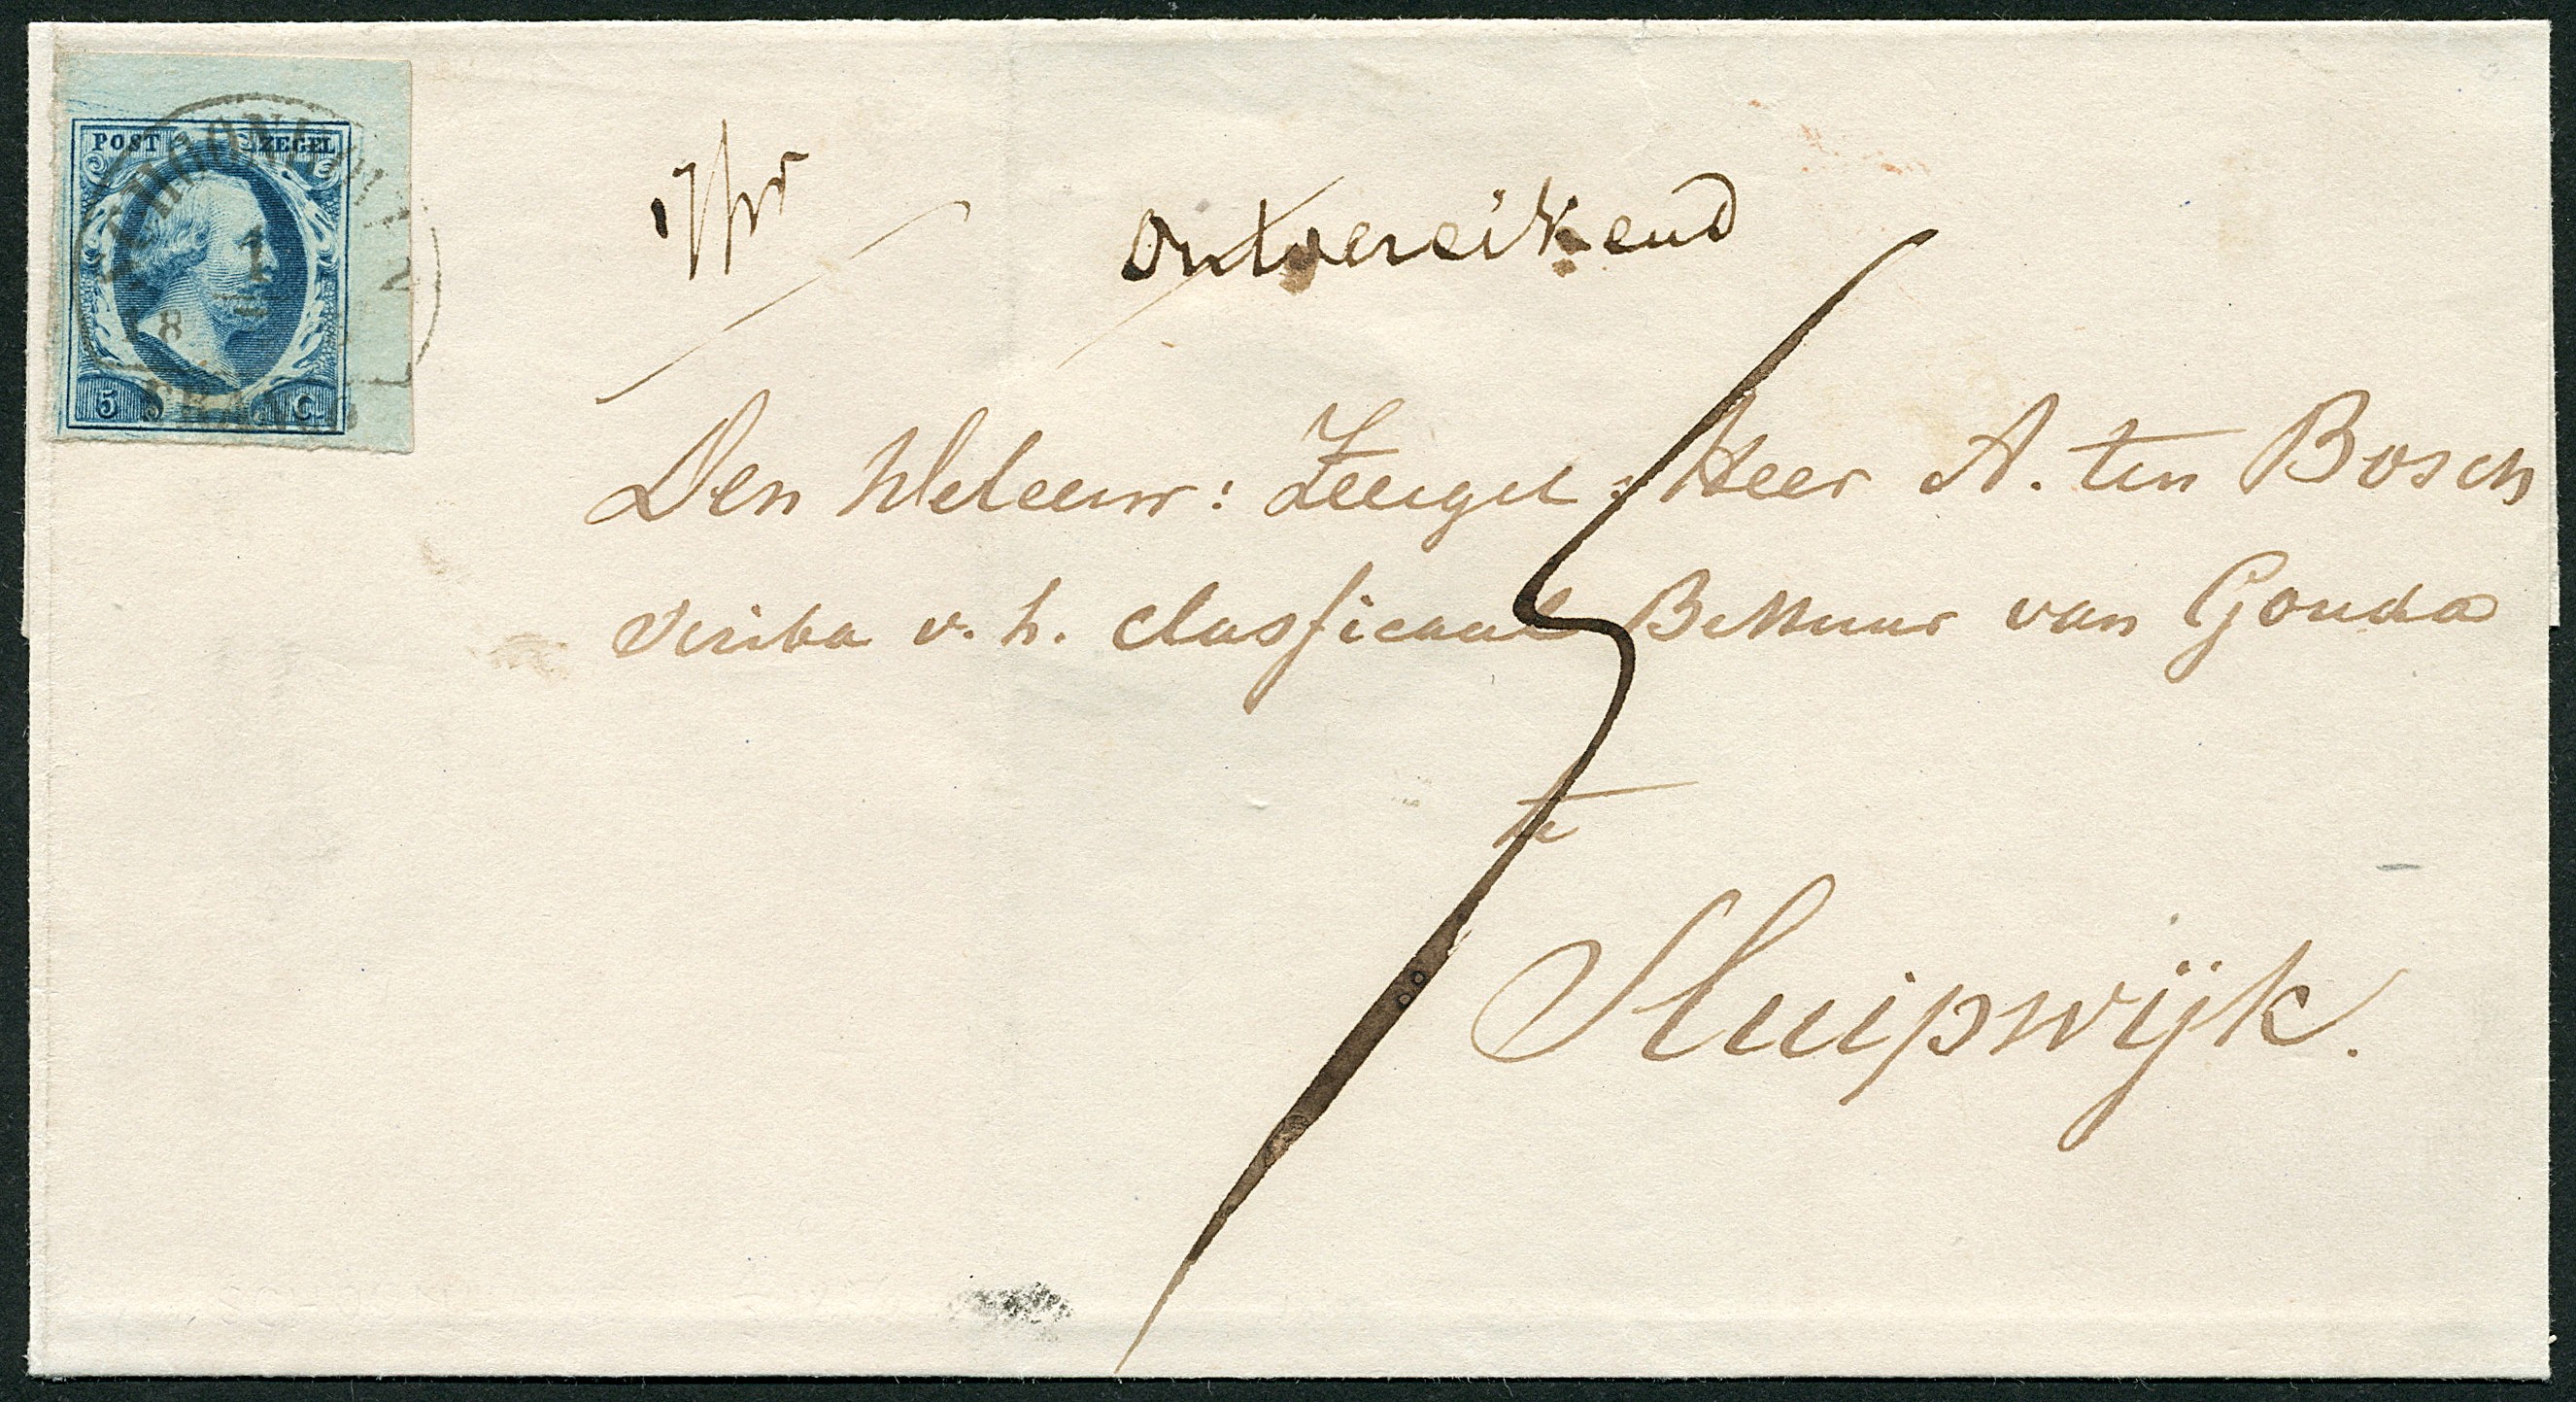 POST ZEGEL
1
18
5 C.
FRANCO
ontoereikend
5
Den WelEerw: Zeergel: Heer A. ten Bosch
Scriba v. h. classicaal Bestuur van Gouda
te
Sluipwijk.